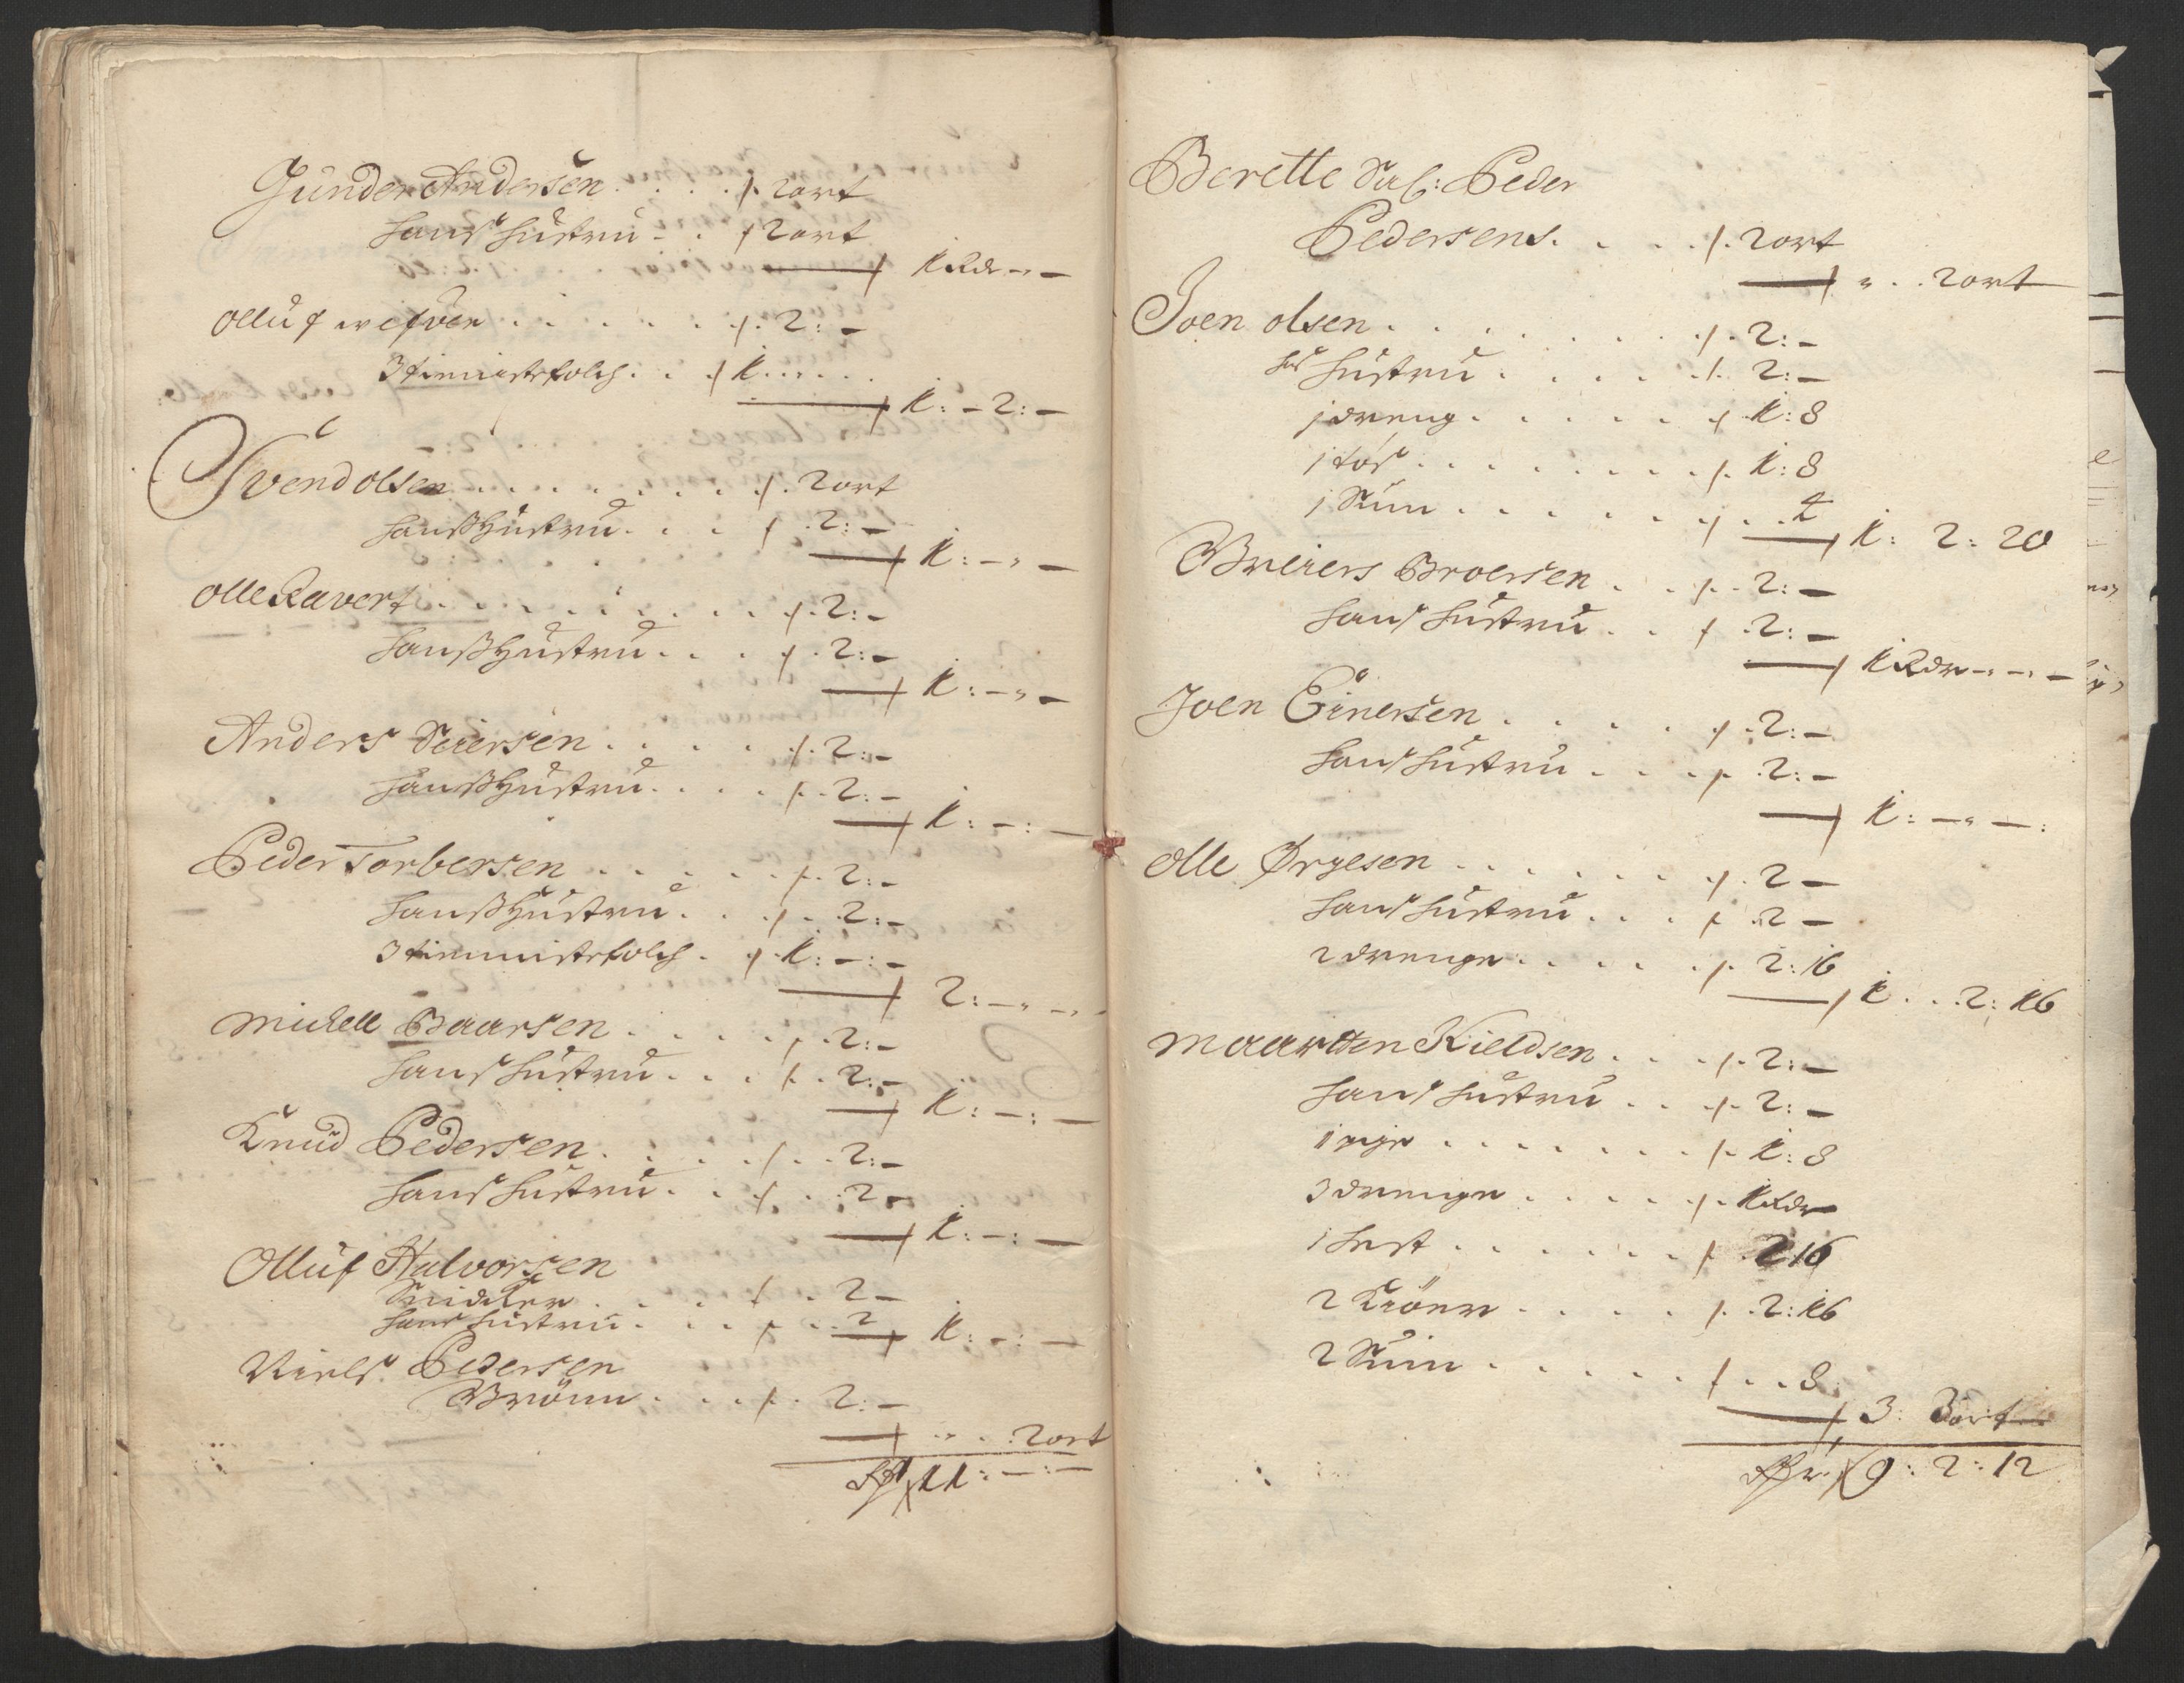 Gunder Andersen . . . . /. 2 ort
hans hustru - . /. 2 ort
1 Rdr - " -
Olluf . . . . . . /. 2: -
3 tiennistefolch . . /. 1 . . . .
1: - 2: -
Svend olsen . . . . . . . /. 2 ort
hanß Hustru . . . /. 2: -
1: - " -
olle Ravert . . . . . . . . /. 2: -
hanß Hustru . . . /. 2: -
1: - " -
Anders Seiersen . . . . /. 2: -
hanß Hustru . . . . /. 2: -
1: - : -
Peder Torbersen . . . . . . /. 2: -
hanß Hustru . . . /. 2: -
3 tiennistefolch . /. 1: - : -
2: - " -
Michell Baarsen . . . . /. 2: -
hans hustru . . . /. 2: -
1: - : -
Knud Pedersen . . . . /. 2: -
hans hustru . . /. . 2 -
1: - : -
Olluf Halvorsen
Snidker . . . /. . 2 -
hans hustru . . . /. . 2
1: - : -
Niels Pedersen
Brönn . . . /. 2: -
" . . 2 ort
11: - : -
Berette Sal: Peder
Pedersens . . . . /. 2 ort
" . . 2 ort
Joen olsen . . . . . . . /. 2: -
hs hustru . . . . . /. 2: -
1 dreng . . . . . /. 1: 8
1 tøs . . . . . . . /. 1: 8
1 Suin . . . . . . /. . . 4
1: 2: 20
Breiers Broersen . . /. . 2: -
hans hustru . . /. 2: -
1 Rdr - " - " -
Joen Einersen . . . . . /. 2: -
hans hustru . . . /. 2: -
1: - " - :
Olle Ørgesen . . . . . . /. 2 -
hans hustru . . . /. 2 -
2 drenge . . . . . /. 2: 16
1 . . 2: 16
Maartten Kieldsen . . . /. 2: -
hans hustru . . /. 2: -
1 pige . . . . . . . /. 1: 8
3 drenge . . . . . /. 1 Rdr
1 hest . . . . . . /. 2 16
2 Kiöer . . . . /. . 2: 16
2 Suin . . . . . /. . . 8
3: 3 ort -
9: 2: 12